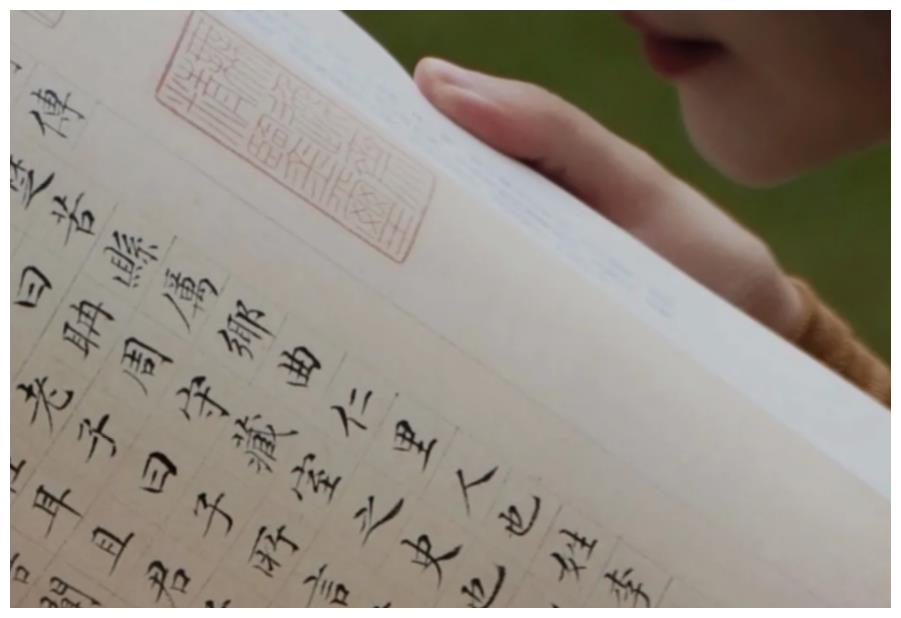 傳
楚苦縣厲鄉曲仁里人也姓李
曰聃周守藏室之史也
老子曰子所言
耳且君
聞